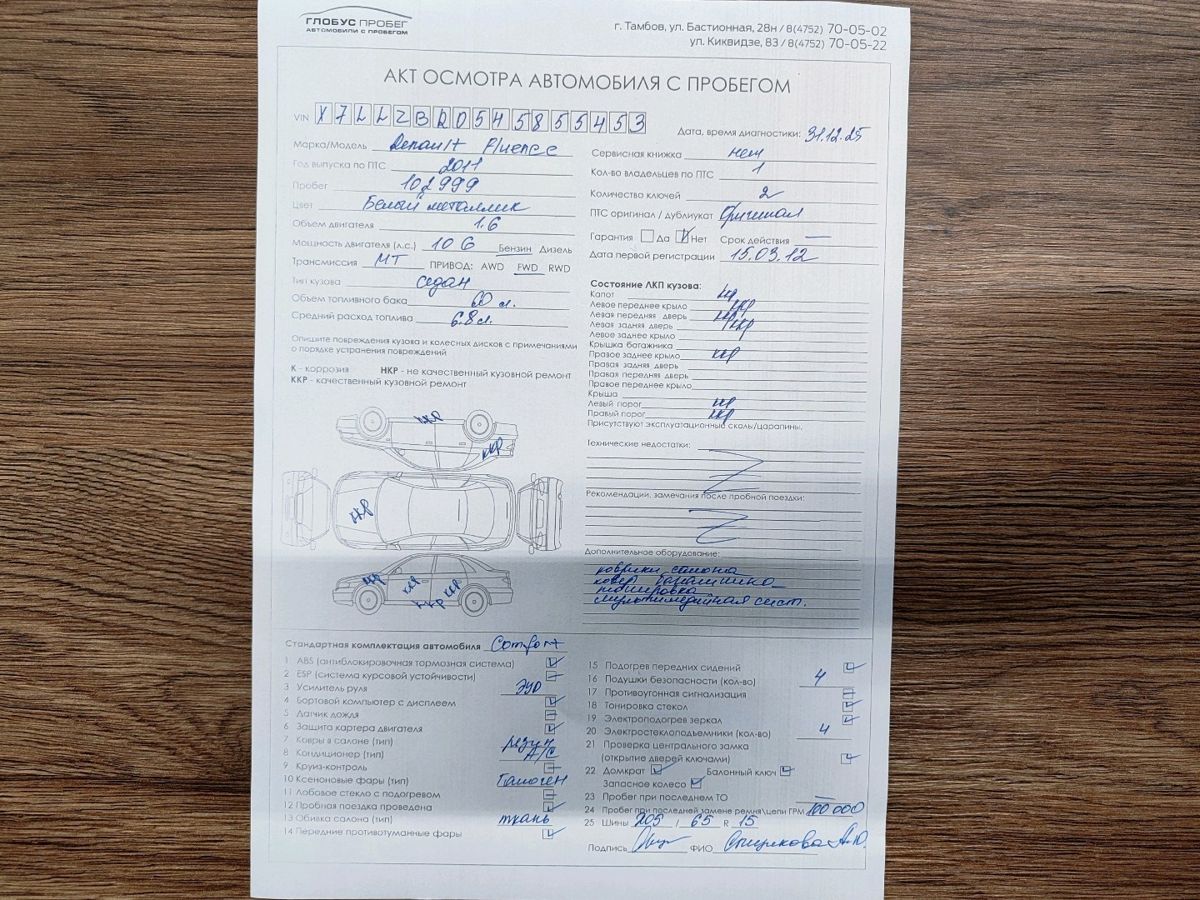 ГЛОБУС ПРОБЕГ
АВТОМОБИЛИ С ПРОБЕГОМ
г. Тамбов, ул. Бастионная, 28н / 8(4752) 70-05-02
ул. Киквидзе, 83 / 8(4752) 70-05-22
АКТ ОСМОТРА АВТОМОБИЛЯ С ПРОБЕГОМ
VIN X7LLZBR0545855453
Дата, время диагностики: 31.12.25
Марка/Модель Renault Fluence
Год выпуска по ПТС 2011
Пробег 102999
Цвет Белый металлик
Объем двигателя 1.6
Мощность двигателя (л.с.) 106 Бензин Дизель
Трансмиссия МТ ПРИВОД: AWD FWD RWD
Тип кузова седан
Объем топливного бака 60 л.
Средний расход топлива 6.8 л.
Сервисная книжка нет
Кол-во владельцев по ПТС 1
Количество ключей 2
ПТС оригинал / дубликат Оригинал
Гарантия Да Нет Срок действия —
Дата первой регистрации 15.03.12
Опишите повреждения кузова и колесных дисков с примечаниями
о порядке устранения повреждений
К - коррозия НКР - не качественный кузовной ремонт
ККР - качественный кузовной ремонт
Состояние ЛКП кузова:
Капот ККР
Левое переднее крыло ККР
Левая передняя дверь ККР
Левая задняя дверь ККР
Левое заднее крыло
Крышка багажника
Правое заднее крыло ККР
Правая задняя дверь
Правая передняя дверь
Правое переднее крыло
Крыша
Левый порог ККР
Правый порог ККР
Присутствуют эксплуатационные сколы/царапины.
ККР
ККР
ККР
ККР ККР ККР
ККР
Технические недостатки:
Рекомендации, замечания после пробной поездки:
Дополнительное оборудование:
коврики салона
ковер багажника
тонировка
мультимедийная сист.
Стандартная комплектация автомобиля Comfort
1 ABS (антиблокировочная тормозная система)
2 ESP (система курсовой устойчивости)
3 Усилитель руля ЭУР
4 Бортовой компьютер с дисплеем
5 Датчик дождя
6 Защита картера двигателя
7 Ковры в салоне (тип) резин
8 Кондиционер (тип) A/C
9 Круиз-контроль
10 Ксеноновые фары (тип) Галоген
11 Лобовое стекло с подогревом
12 Пробная поездка проведена
13 Обивка салона (тип) ткань
14 Передние противотуманные фары
15 Подогрев передних сидений
16 Подушки безопасности (кол-во) 4
17 Противоугонная сигнализация
18 Тонировка стекол
19 Электроподогрев зеркал
20 Электростеклоподъемники (кол-во) 4
21 Проверка центрального замка
(открытие дверей ключами)
22 Домкрат Балонный ключ
Запасное колесо
23 Пробег при последнем ТО —
24 Пробег при последней замене ремня\цепи ГРМ 100 000
25 Шины 205 / 65 R 15
Подпись ФИО